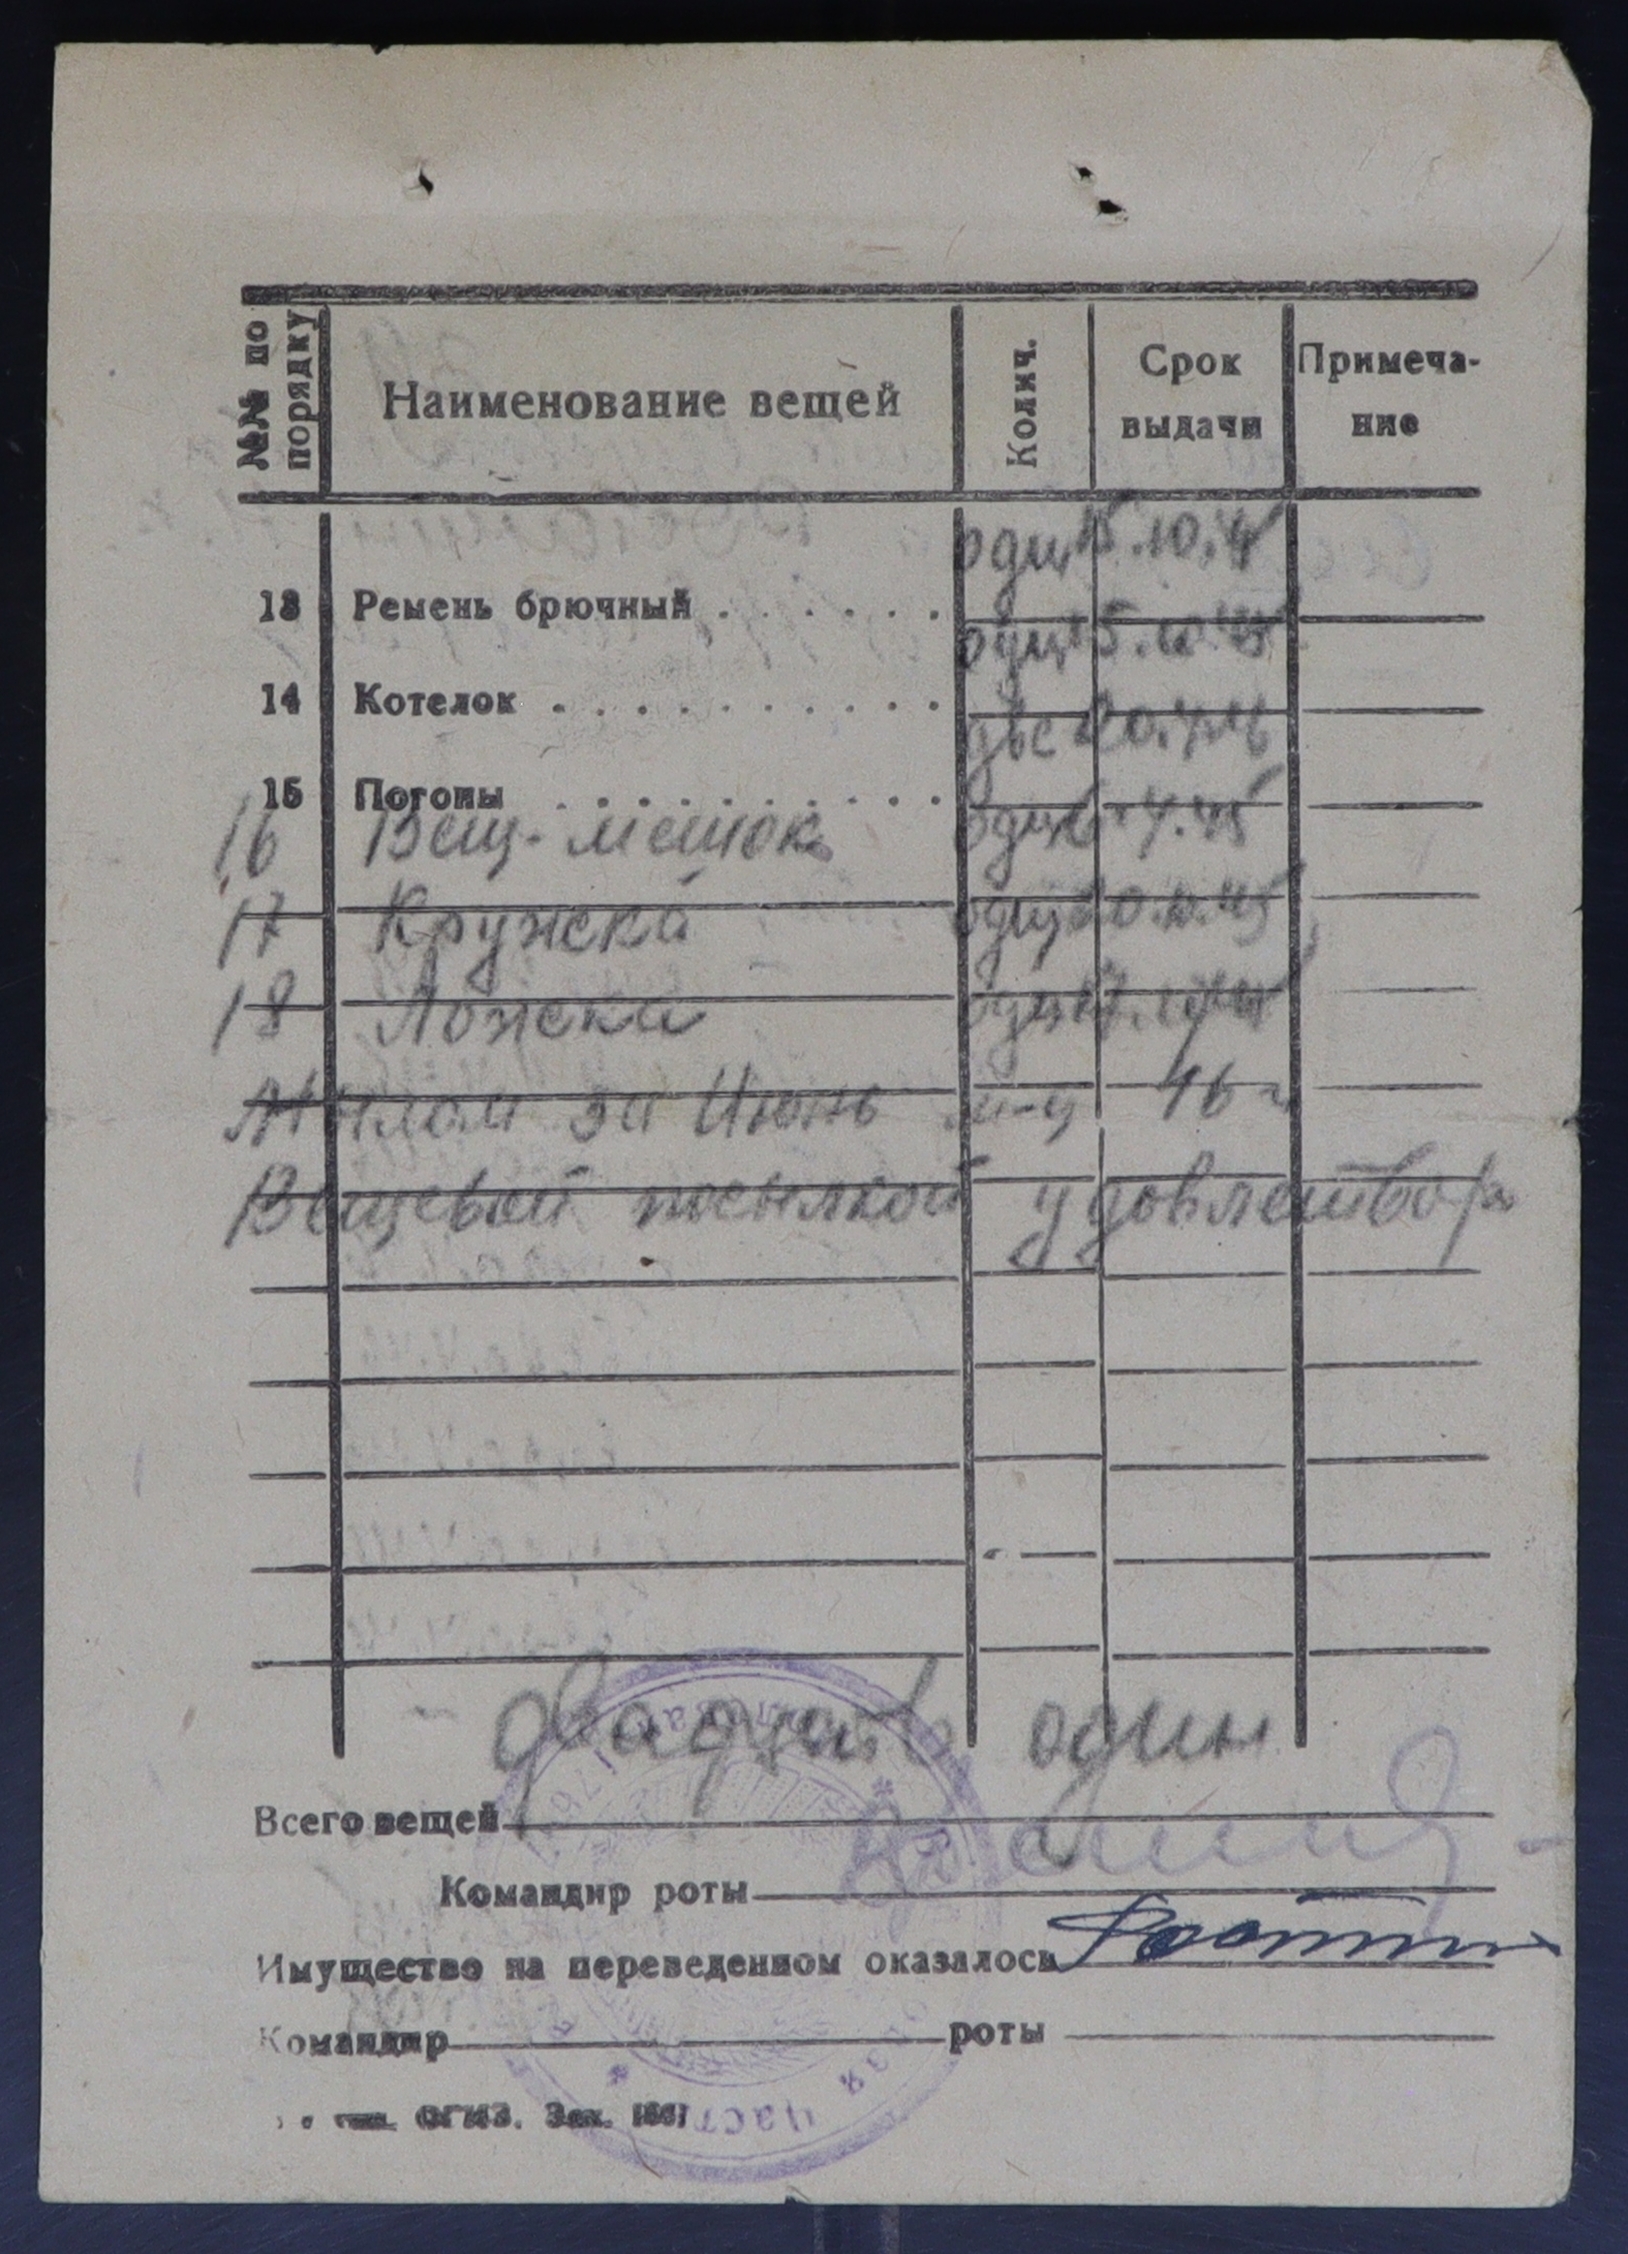 №№ по порядку Наименование вещей Колич. Срок выдачи Примеча-ние
13 Ремень брючный . . . . . . один 15.10.45
14 Котелок . . . . . . . . . . один 15.10.45
15 Погоны . . . . . . . . . . две 20.4.46
16 Вещ-мешок один 4.45
17 Кружка один 20.10.45
18 Ложка один
Мылом за Июнь м-ц 46 г
Вещевой посылкой удовлетвор
двадцать один
Всего вещей
Командир роты
Имущество на переведенном оказалось
Командир роты
ОГИЗ. Зак.